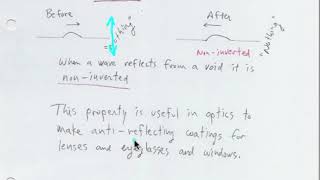 Before
After
"Nothing"
"Nothing"
non-inverted
When a wave reflects from a void it is
non-inverted
This property is useful in optics to
make anti-reflecting coatings for
lenses and eyeglasses and windows.